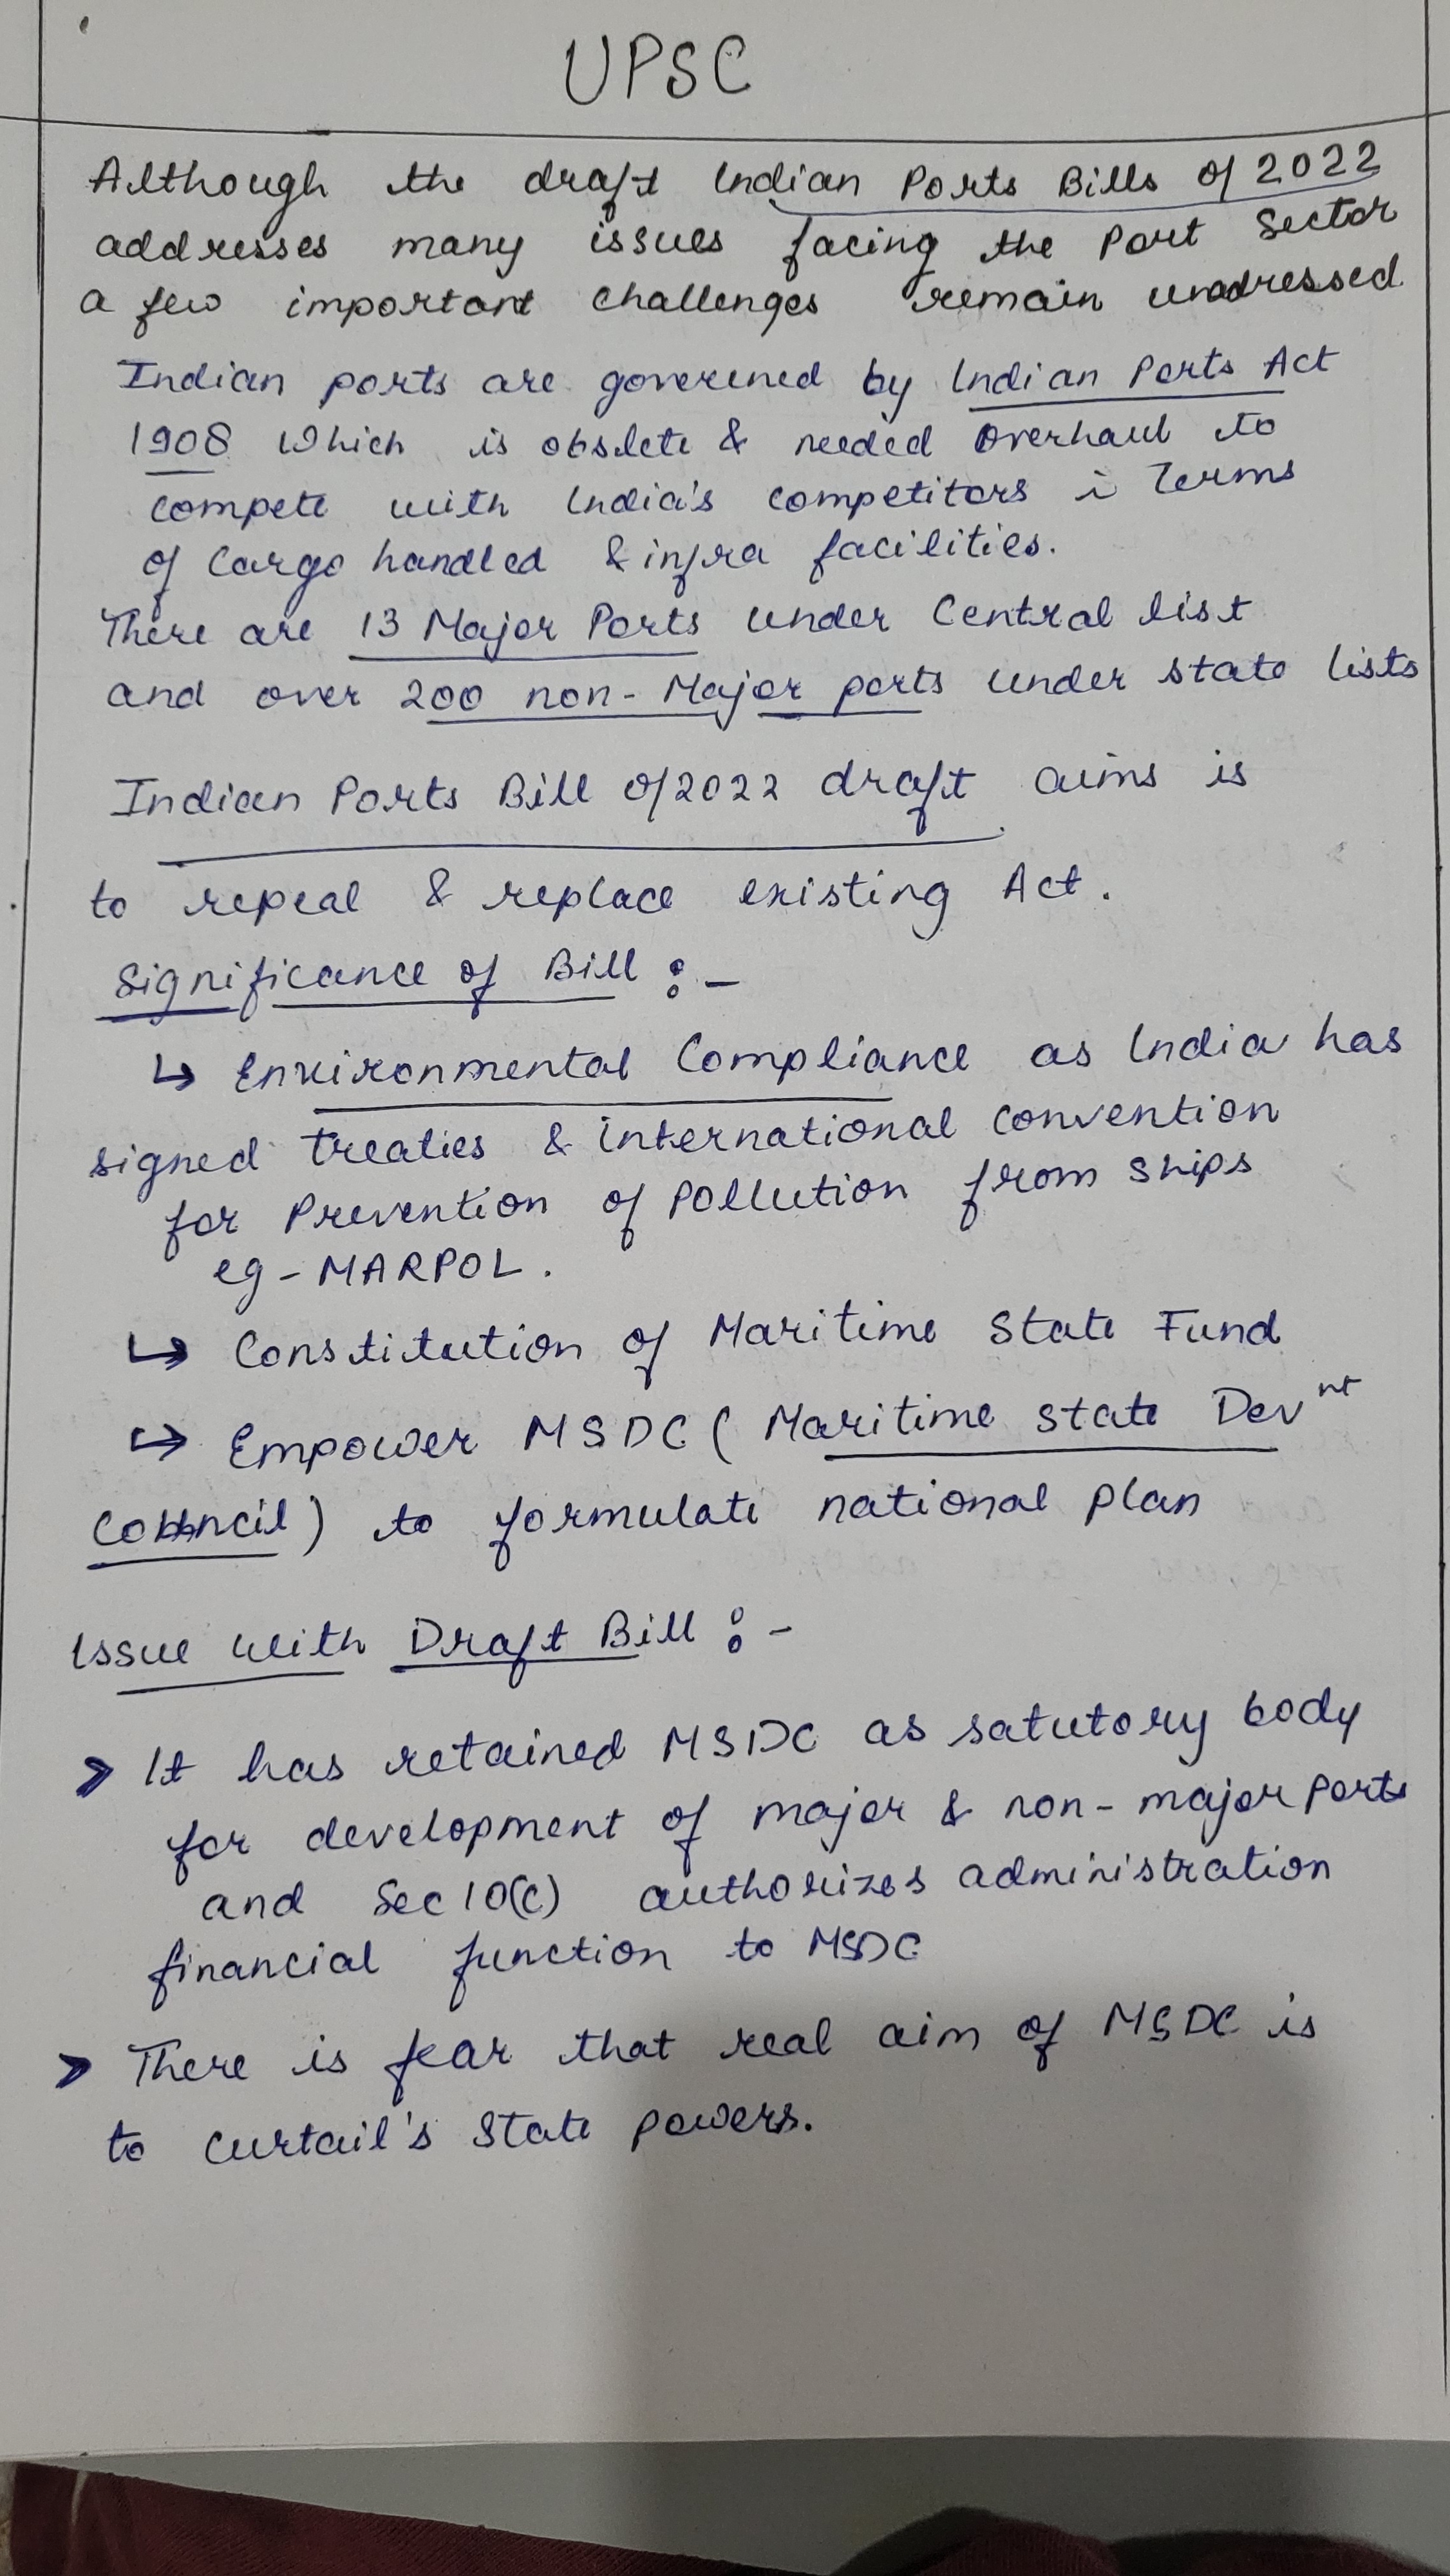 UPSC
Although the draft Indian Ports Bills of 2022
addresses many issues facing the Port Sector
a few important challenges remain unadressed
Indian ports are goverened by Indian Ports Act
1908 which is obslete & needed overhaul to
compete with India's competitors i Terms
of Cargo handled & infra facilities.
There are 13 Major Ports under Central list
and over 200 non-Major ports under state lists
Indian Ports Bill of 2022 draft aims is
to repeal & replace existing Act.
Significance of Bill :-
↳ Environmental Compliance as India has
signed treaties & international convention
for Prevention of Pollution from Ships
eg - MARPOL.
↳ Constitution of Maritime State Fund
↳ Empower MSDC ( Maritime State Dev nt
Council ) to formulate national plan
Issue with Draft Bill :-
> It has retained MSDC as satutory body
for development of major & non-major Ports
and Sec 10(c) authorizes administration
financial function to MSDC
> There is fear that real aim of MSDC is
to curtail's State powers.